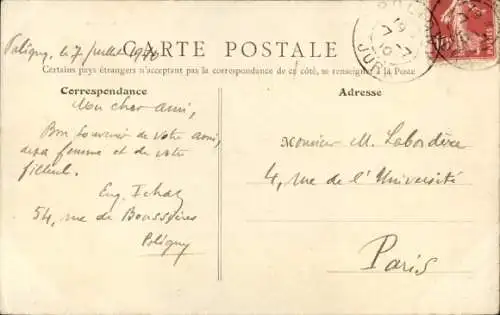 Poligny, le 7 juillet
CARTE POSTALE
Certains pays étrangers n'acceptant pas la correspondance de ce côté, se renseigner à la Poste
Correspondance
Adresse
Mon cher ami,
Bon souvenir de votre ami,
de sa femme et de votre
filleul.
Eug.
54, rue de Boussières
Poligny
Monsieur M. Labordère
4, rue de l'Université
Paris
JURA